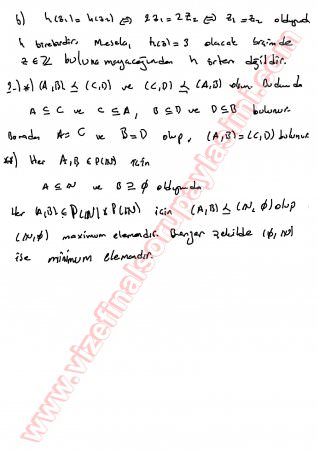 b) h(z₁) = h(z₂) ⇔ 2z₁ = 2z₂ ⇔ z₁ = z₂ olduğundan
h birebirdir. Mesela, h(z) = 3 olacak biçimde
z ∈ ℤ bulunamayacağından h örten değildir.
2-) *) (A,B) ≼ (C,D) ve (C,D) ≼ (A,B) olsun. Bu durumda
A ⊆ C ve C ⊆ A, B ⊆ D ve D ⊆ B bulunur.
Buradan A = C ve B = D olup, (A,B) = (C,D) bulunur.
**) Her A, B ∈ P(ℕ) için
A ⊆ ℕ ve B ⊇ ∅ olduğundan
Her (A,B) ∈ P(ℕ) x P(ℕ) için (A,B) ≼ (ℕ, ∅) olup
(ℕ, ∅) maximum elemandır. Benzer şekilde (∅, ℕ)
ise minimum elemandır.
www.vizefinalsorupaylasimi.com